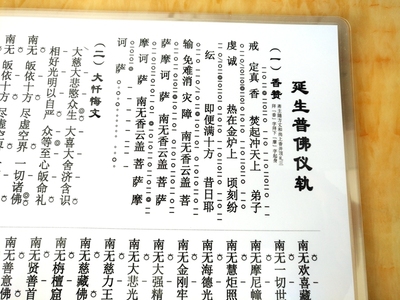 延生普佛仪轨
(一)香赞
戒 定真香 焚起冲天上 弟子
虔诚 热在金炉上 顷刻纷
纭 即便满十方 昔日耶
输 免难消 灾障 南无香云盖 菩
萨 摩诃萨 南无香云盖 菩 萨
摩 诃 萨 南无香云盖 菩 萨 摩
诃 萨
(二)大忏悔文
大慈大悲愍众生 大喜大舍济含识
相好光明以自严 众等至心皈命礼
南无 皈依十方 尽虚空界 一切诸佛
南无 皈依十方 尽虚空
南无欢喜藏
南无一切世
南无摩尼幢
南无慧炬照
南无海德光
南无金刚牢
南无大强精
南无大悲光
南无慈力王
南无慈藏佛
南无栴檀窟
南无贤善首
南无善意佛